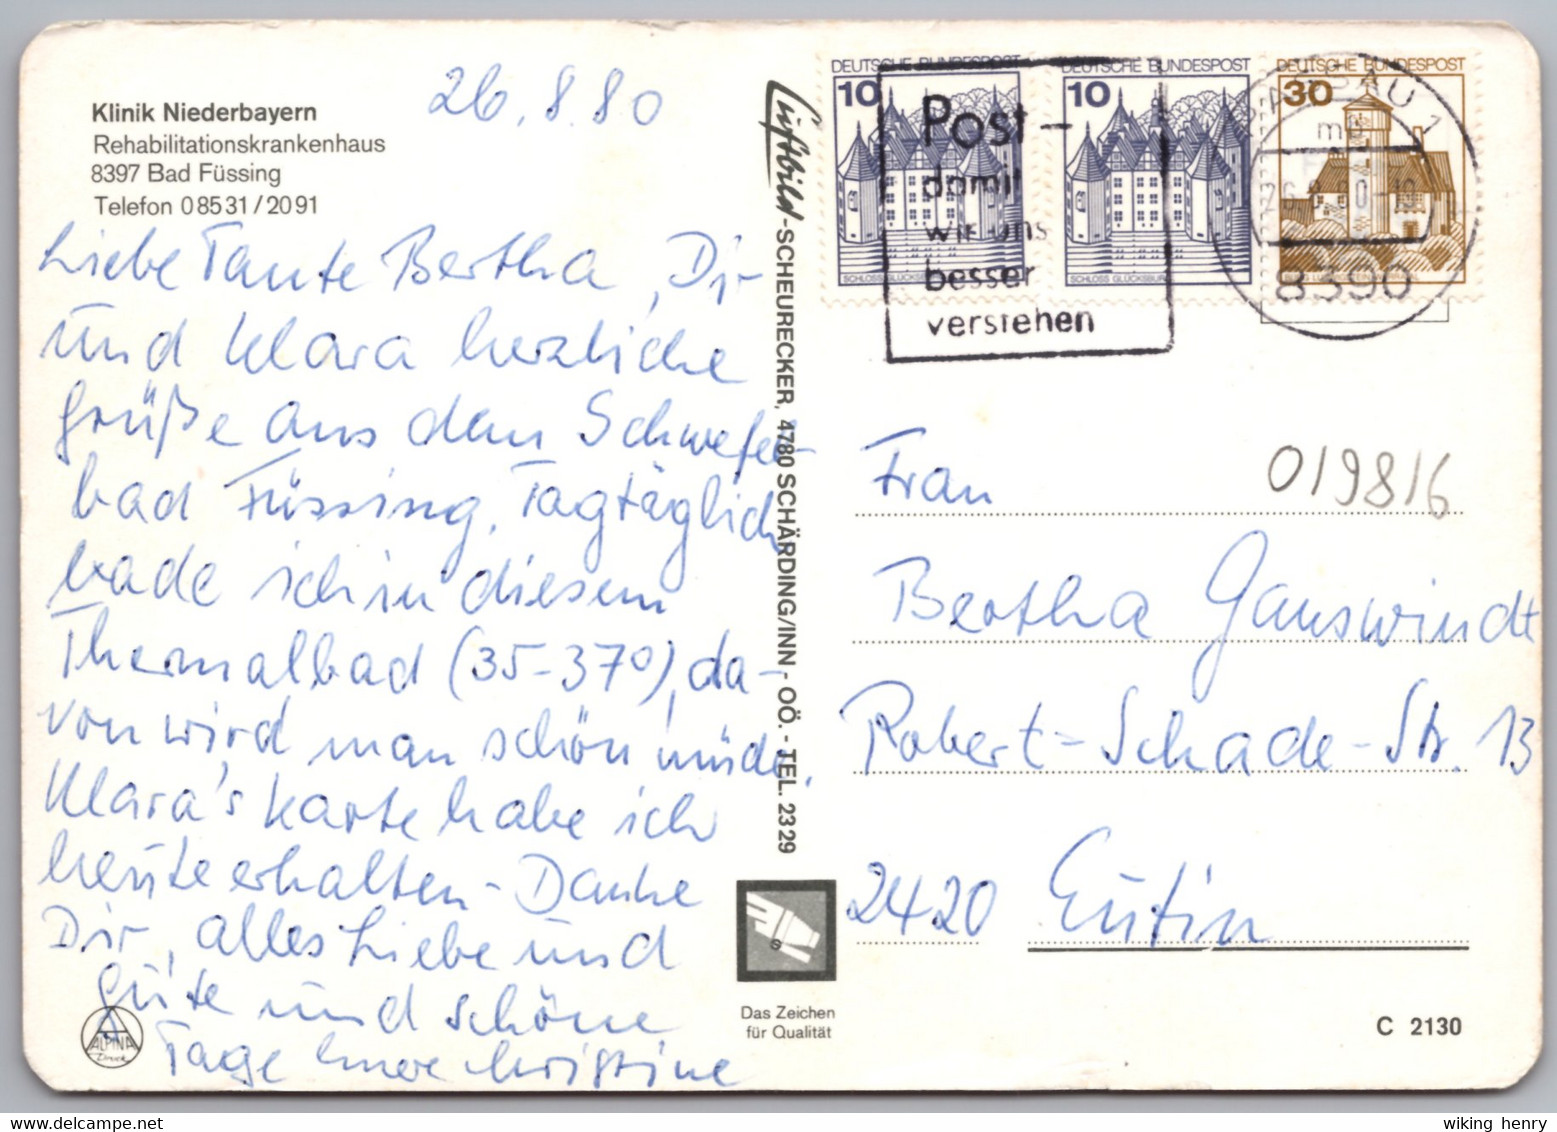 Klinik Niederbayern
Rehabilitationskrankenhaus
8397 Bad Füssing
Telefon 0 85 31 / 20 91
26.8.80
Liebe Tante Bertha, Dir
und Klara herzliche
Grüße aus dem Schwefel-
bad Füssing. Tagtäglich
bade ich in diesem
Thermalbad (35-37°), da-
von wird man schön müde.
Klara's Karte habe ich
heute erhalten - Danke
Dir, alles Liebe und
Gute und schöne
Tage Eure Christine
ALPINA
Druck
Luftbild-SCHEURECKER, 4780 SCHÄRDING/INN - OÖ. - TEL. 2329
Das Zeichen
für Qualität
DEUTSCHE BUNDESPOST
10
SCHLOSS GLÜCKSBURG
DEUTSCHE BUNDESPOST
10
SCHLOSS GLÜCKSBURG
DEUTSCHE BUNDESPOST
30
Post-
damit
wir uns
besser
verstehen
PASSAU 1
mb
26.8.80-19
8390
019816
Frau
Bertha Ganswindt
Robert-Schade-Str. 13
2420 Eutin
C 2130
wiking henry